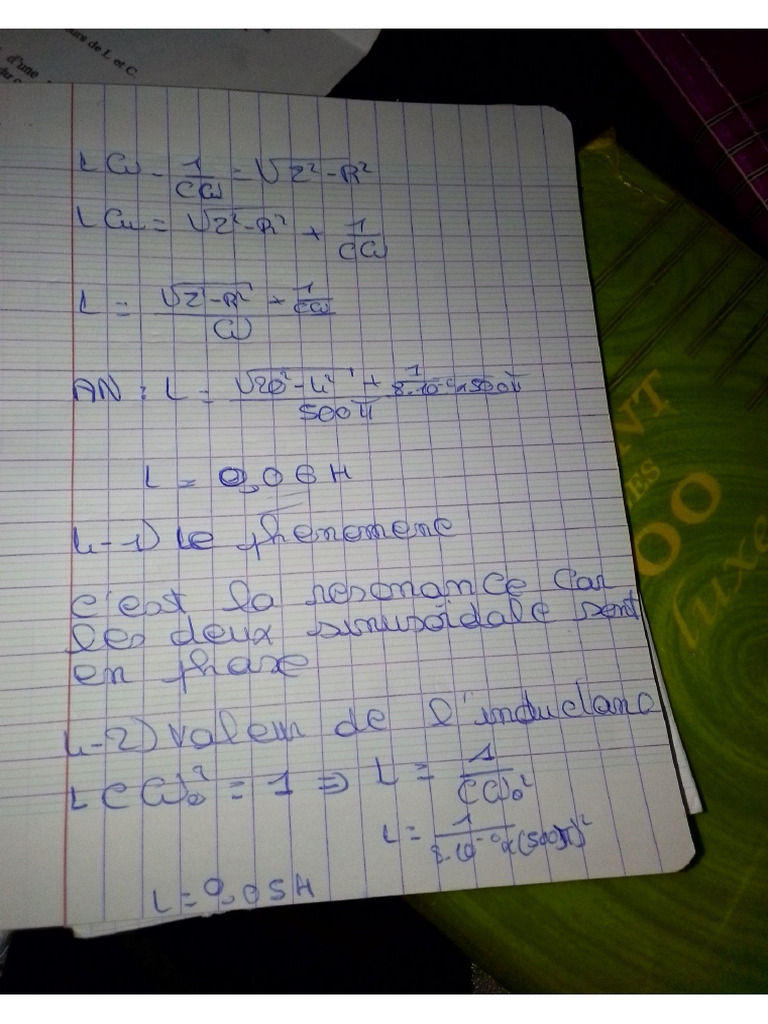 ours de L et C.
d'une
LCω - 1/Cω = √Z² - R²
Lω = √Z² - R² + 1/Cω
L = (√Z - R² + 1/Cω) / ω
AN : L = (√20² - 4² + 1/8.10⁻⁶ x 500π) / 500π
L = 0,06 H
4-1) Le phenomene
c'est la resonance car
les deux sinusoïdale sont
en phase
4-2) valeur de l'inductanc
LCω₀² = 1 ⇒ L = 1/Cω₀²
L = 1/8.10⁻⁶ x (500π)²
L = 0,05H
NT
ES
OO
luxe